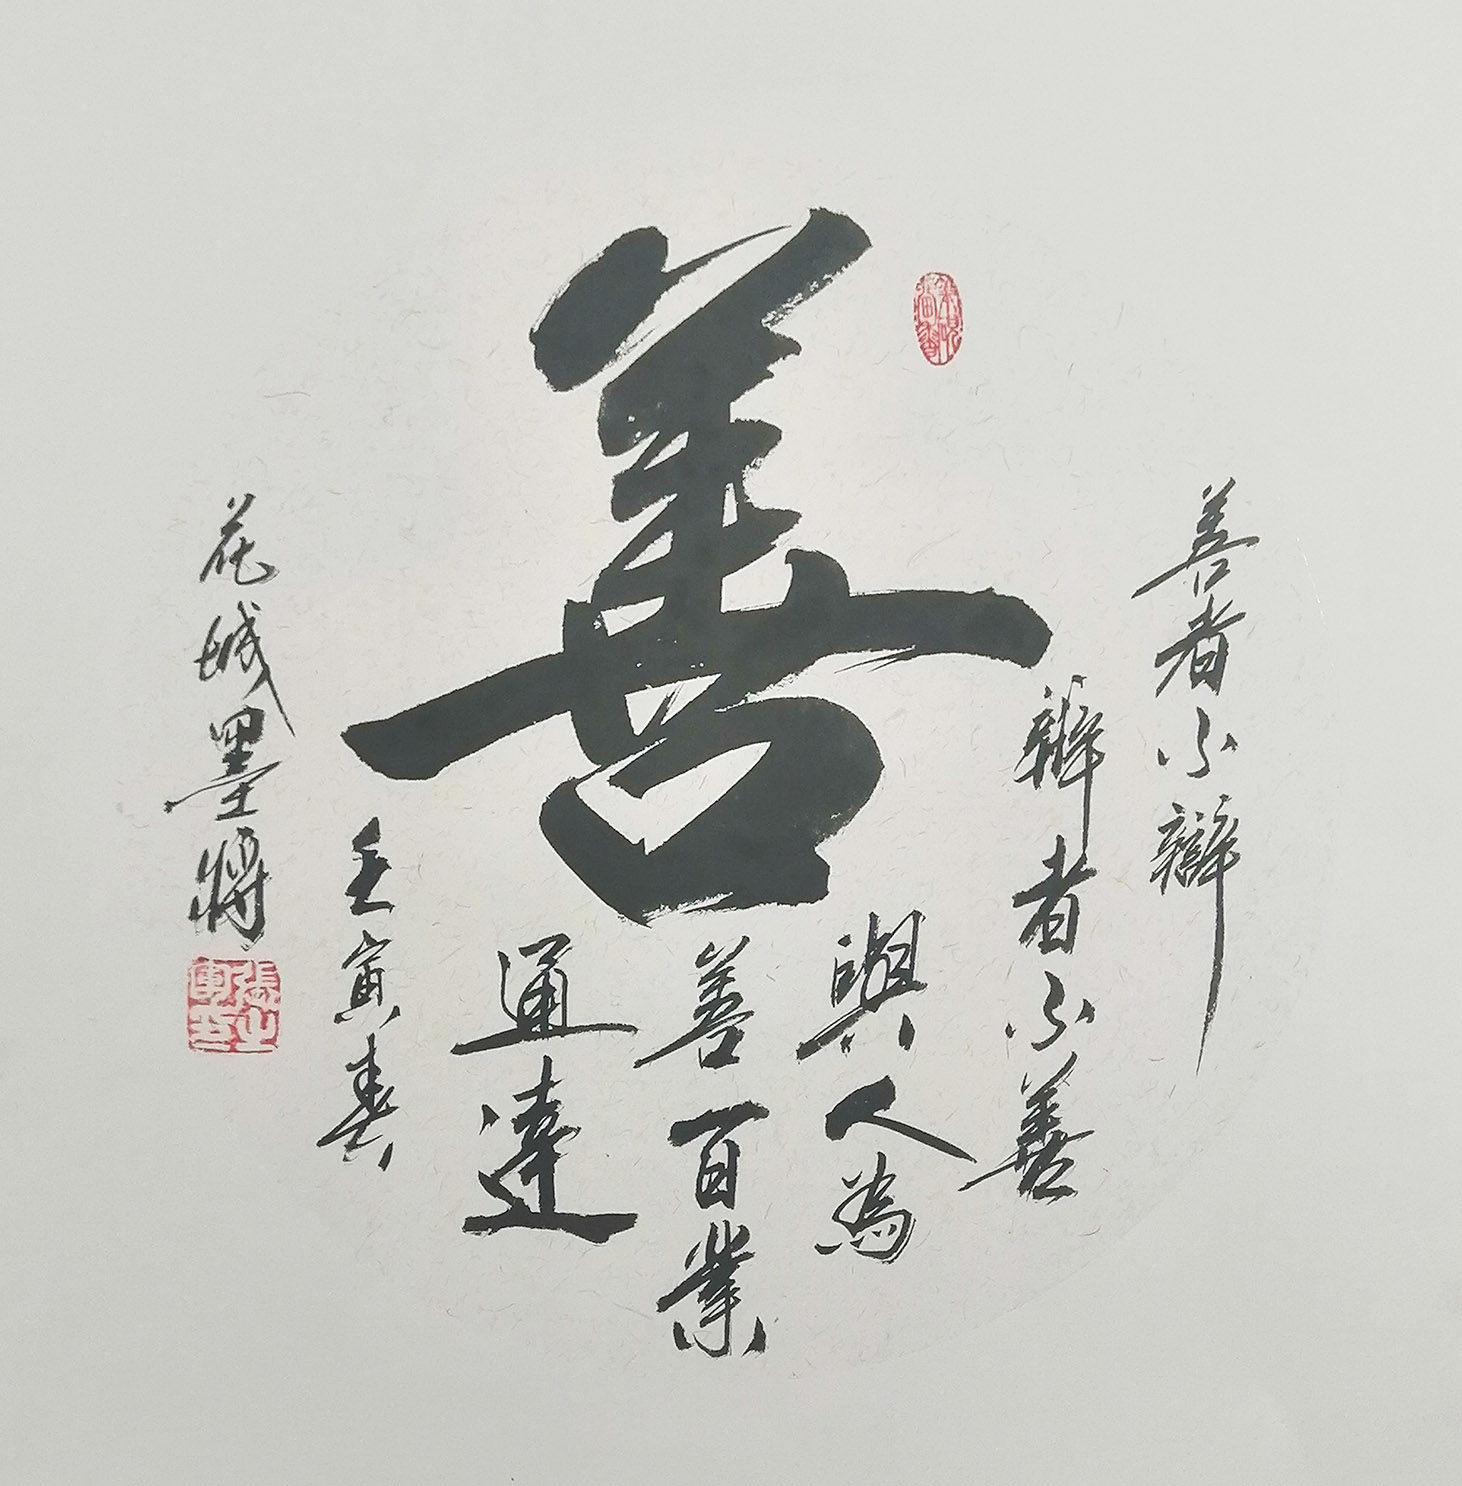 善
善者不辯
辯者不善
與人為
善百業
通達
壬寅春
花城墨將